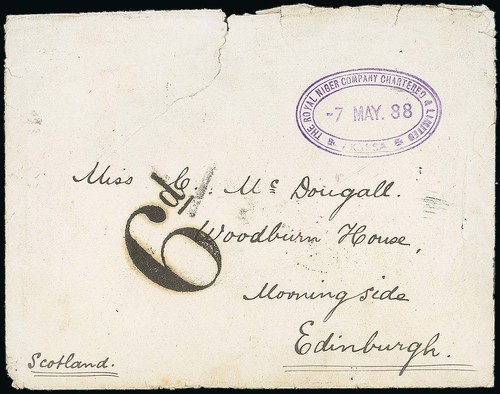 THE ROYAL NIGER COMPANY CHARTERED & LIMITED
-7 MAY. 88
AKASSA
6d
Miss C. Mc Dougall.
Woodburn House,
Morningside
Edinburgh.
Scotland.